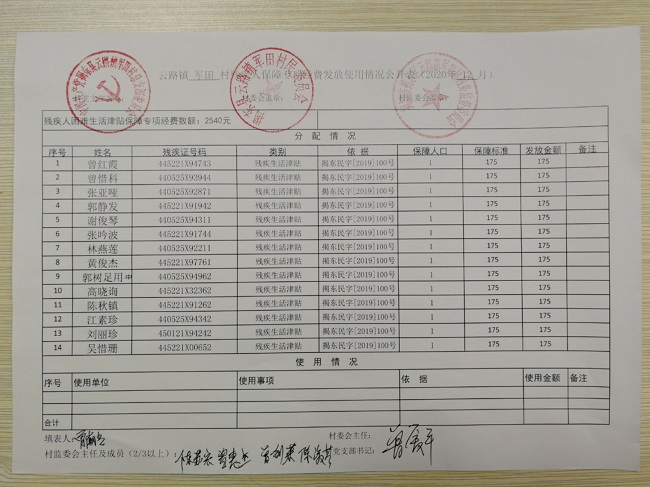 云路镇 军田 村 人保障 费发放使用情况公开表（2020年 12 月）
村委会盖章： 村监委会盖章：
残疾人困难生活津贴保障专项经费数额：2540元
分 配 情 况
序号 姓名 残疾证号码 类别 依 据 保障人口 保障标准 发放金额 备注
1 曾红霞 445221X94743 残疾生活津贴 揭东民字[2019]100号 1 175 175
2 曾惜科 440525X93944 残疾生活津贴 揭东民字[2019]100号 1 175 175
3 张亚哑 440525X92871 残疾生活津贴 揭东民字[2019]100号 1 175 175
4 郭静发 445221X91942 残疾生活津贴 揭东民字[2019]100号 1 175 175
5 谢俊琴 440525X94311 残疾生活津贴 揭东民字[2019]100号 1 175 175
6 张吟波 445221X91744 残疾生活津贴 揭东民字[2019]100号 1 175 175
7 林燕莲 440525X92211 残疾生活津贴 揭东民字[2019]100号 1 175 175
8 黄俊杰 445221X97761 残疾生活津贴 揭东民字[2019]100号 1 175 175
9 郭树足用中 440525X94962 残疾生活津贴 揭东民字[2019]100号 1 175 175
10 高晓询 445221X32362 残疾生活津贴 揭东民字[2019]100号 1 175 175
11 陈秋镇 445221X91262 残疾生活津贴 揭东民字[2019]100号 1 175 175
12 江素珍 440525X94342 残疾生活津贴 揭东民字[2019]100号 1 175 175
13 刘丽珍 450121X94242 残疾生活津贴 揭东民字[2019]100号 1 175 175
14 吴惜珊 445221X00652 残疾生活津贴 揭东民字[2019]100号 1 175 175
使 用 情 况
序号 使用单位 使用事项 依 据 使用金额 备注
合计
填表人： 村委会主任：
村监委会主任及成员（2/3以上）： 党支部书记：